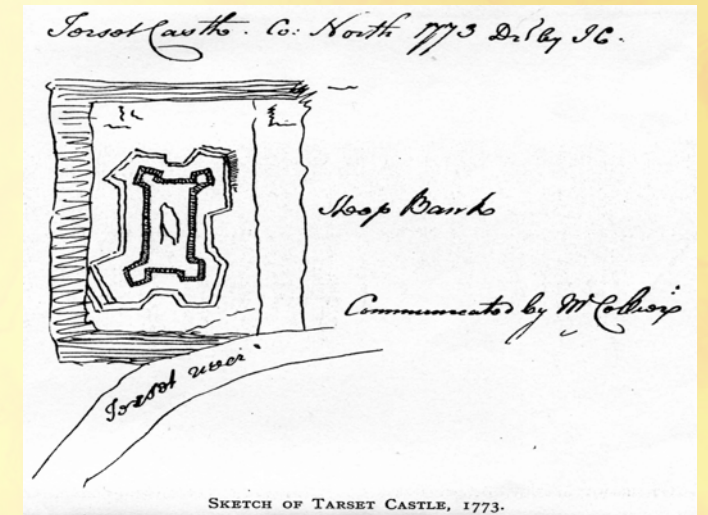 Torset Castle. Co: North 1773 Dr. by J C.
Steep Bank
Communicated by Mr Collier
Torset river
SKETCH OF TARSET CASTLE, 1773.